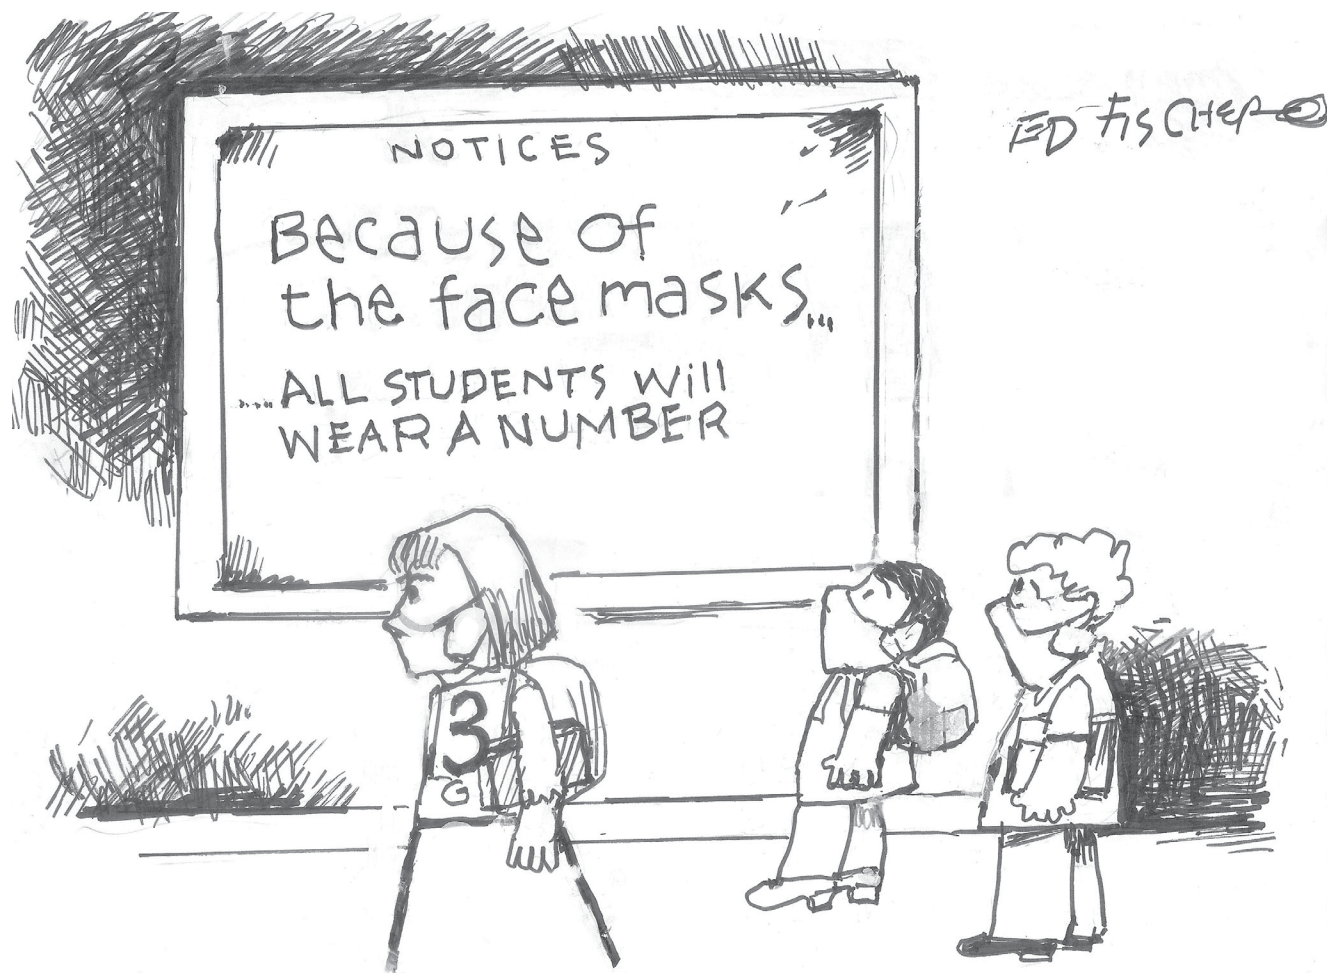 ED FISCHER
NOTICES
Because of
the face masks...
.....ALL STUDENTS Will
WEAR A NUMBER
3
G